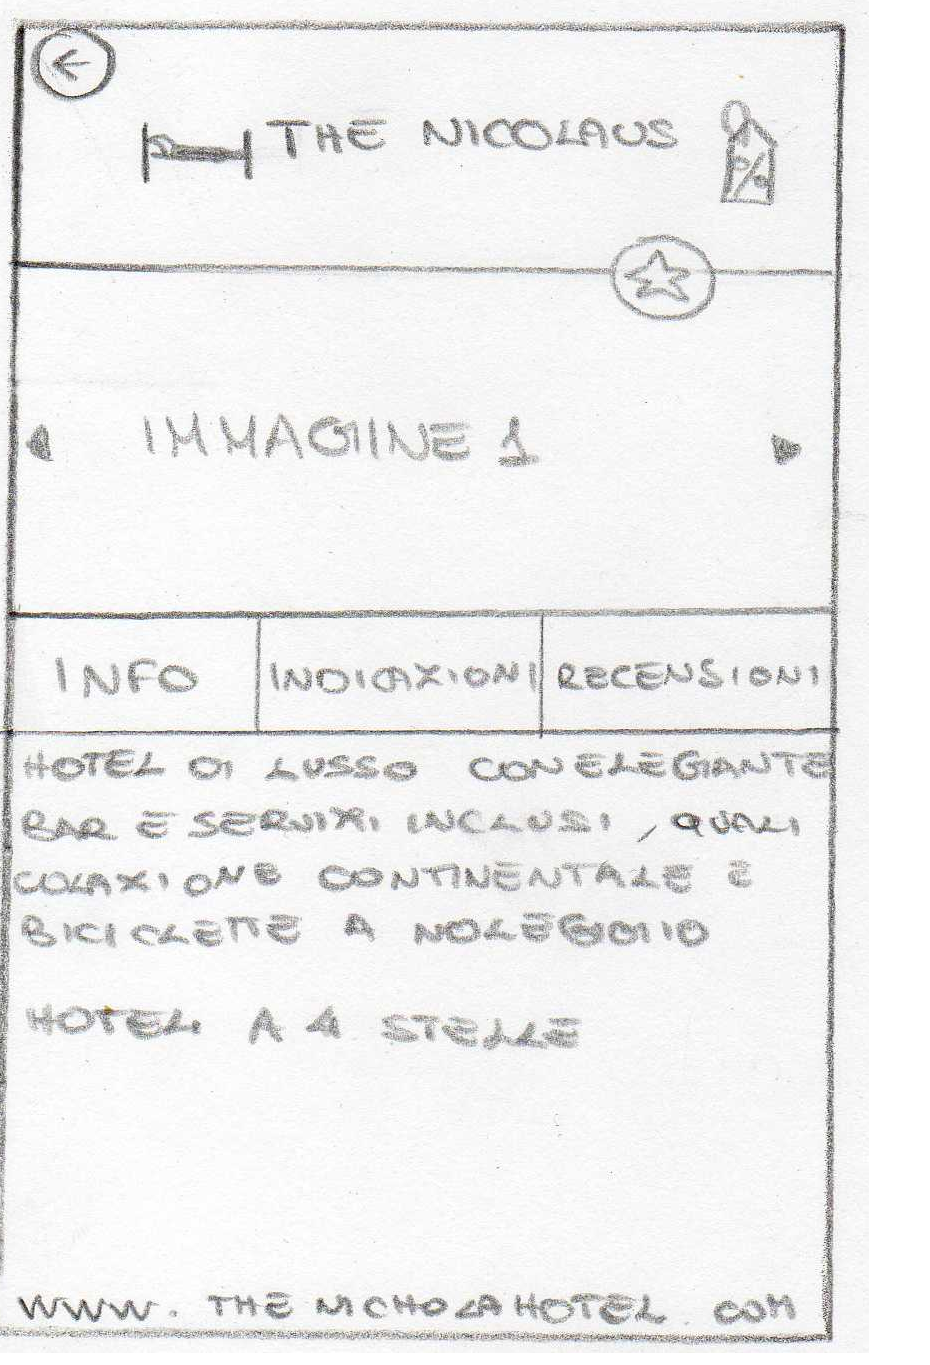 THE NICOLAUS
IMMAGIINE 1
INFO
INDICAZIONI
RECENSIONI
HOTEL DI LUSSO CON ELEGANTE
BAR E SERVIZI INCLUSI, QUALI
COLAZIONE CONTINENTALE E
BICICLETTE A NOLEGGIO
HOTEL A 4 STELLE
WWW. THE NICHOLA HOTEL. COM